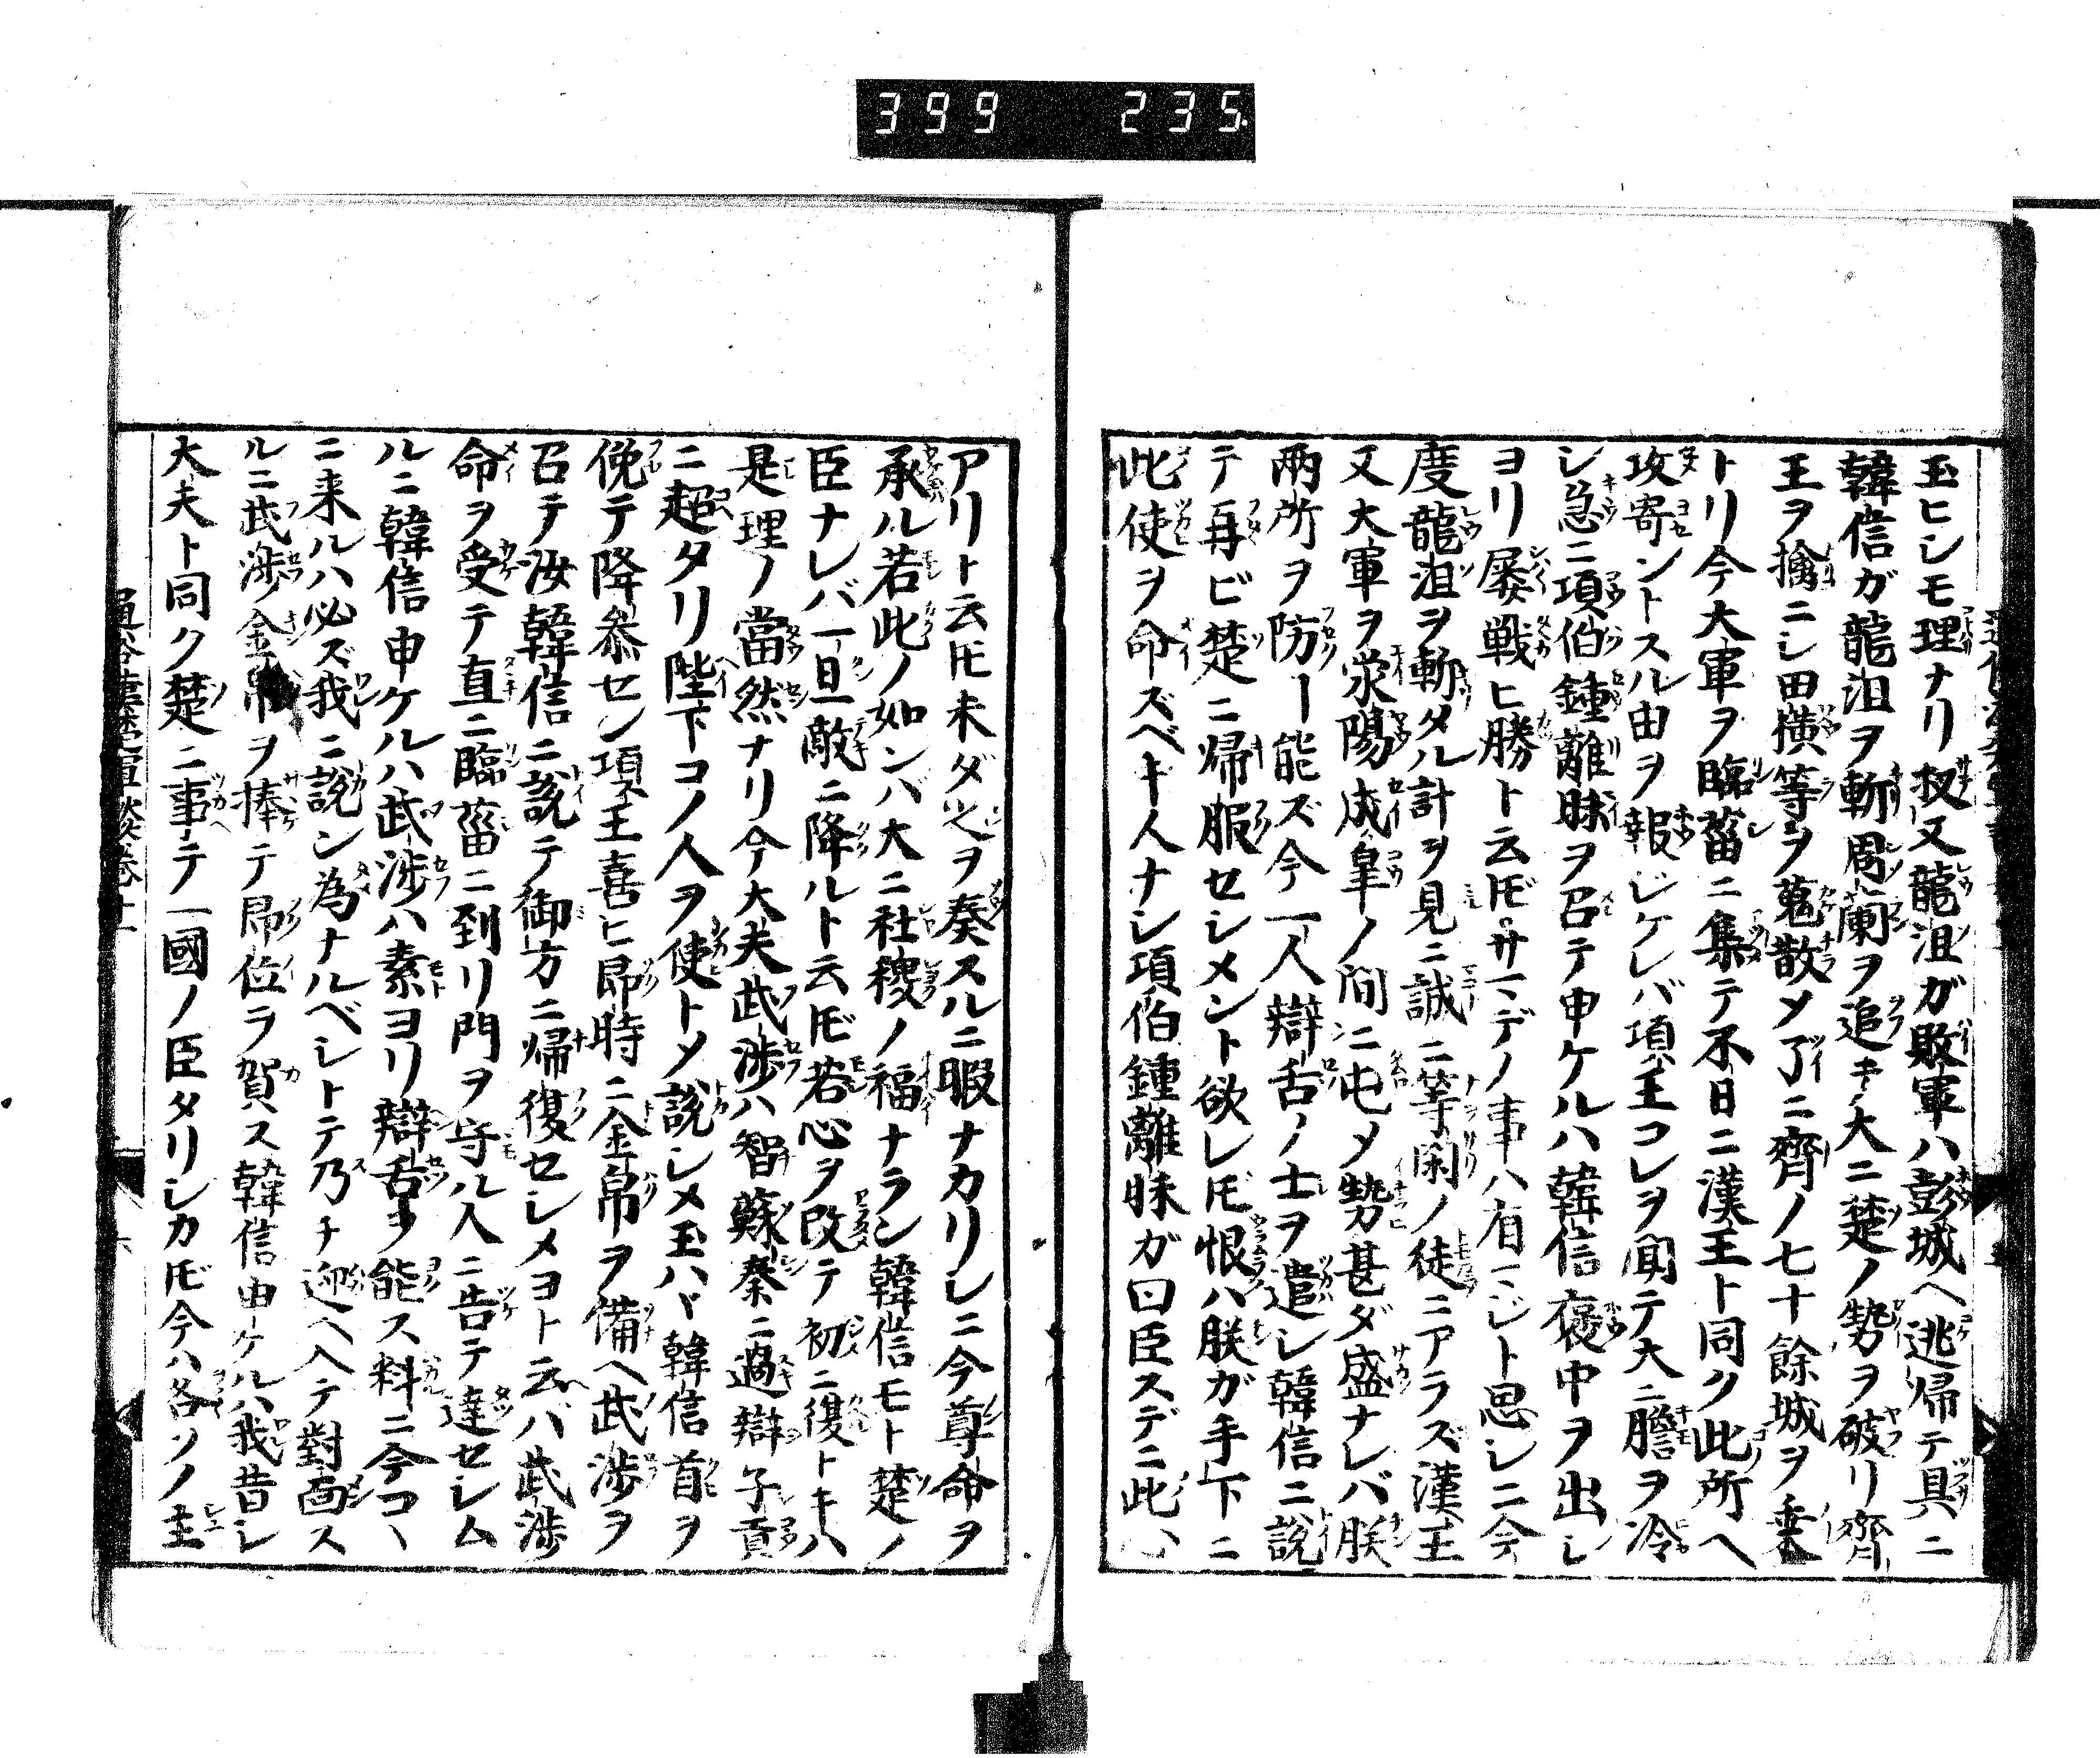 399 235
玉ヒシモ理ナリ扨又龍沮ガ敗軍ハ彭城ヘ逃帰テ具ニ
韓信ガ龍沮ヲ斬周蘭ヲ追キ大ニ楚ノ勢ヲ破リ齊
王ヲ擒ニシ田横等ヲ蒐散メ了ニ齊ノ七十餘城ヲ乗
トリ今大軍ヲ臨菑ニ集テ不日ニ漢王ト同ク此所ヘ
攻寄ントスル由ヲ報ジケレバ項王コレヲ聞テ大ニ膽ヲ冷
シ急ニ項伯鍾離昧ヲ召テ申ケルハ韓信褒中ヲ出シ
ヨリ屡戦ヒ勝ト云𪜈サマデノ事ハ有マジト思シニ今
度龍沮ヲ斬タル計ヲ見ニ誠ニ等閑ノ徒ニアラズ漢王
又大軍ヲ滎陽成皐ノ間ニ屯メ勢甚ダ盛ナレバ朕
兩所ヲ防ー能ズ今一人辯舌ノ士ヲ遣シ韓信ニ説
テ再ビ楚ニ帰服セシメント欲レ𪜈恨ハ朕ガ手下ニ
此使ヲ命ズベキ人ナシ項伯鍾離昧ガ曰臣スデニ此
アリト云𪜈未ダ之ヲ奏スルニ暇ナカリシニ今尊命ヲ
承ル若此ノ如ンバ大ニ社稷ノ福ナラン韓信モト楚ノ
臣ナレバ一旦敵ニ降ルト云𪜈若心ヲ改テ初ニ復トキハ
是理ノ當然ナリ今大夫武渉ハ智蘇秦ニ過辯子貢
ニ超タリ陛下コノ人ヲ使トメ説シメ玉ハヾ韓信首ヲ
俛テ降参セン項王喜ヒ即時ニ金帛ヲ備ヘ武渉ヲ
召テ汝韓信ニ説テ御方ニ帰復セシメヨト云ヘバ武渉
命ヲ受テ直ニ臨菑ニ到リ門ヲ守ル人ニ告テ達セシム
ルニ韓信申ケルハ武渉ハ素ヨリ辯舌ヲ能ス料ニ今コヽ
ニ来ルハ必ズ我ニ説ン為ナルベシトテ乃チ迎ヘ入テ對面ス
ルニ武渉金帛ヲ捧テ即位ヲ賀ス韓信申ケルハ我昔シ
大夫ト同ク楚ニ事テ一國ノ臣タリシカ𪜈今ハ各ソノ主